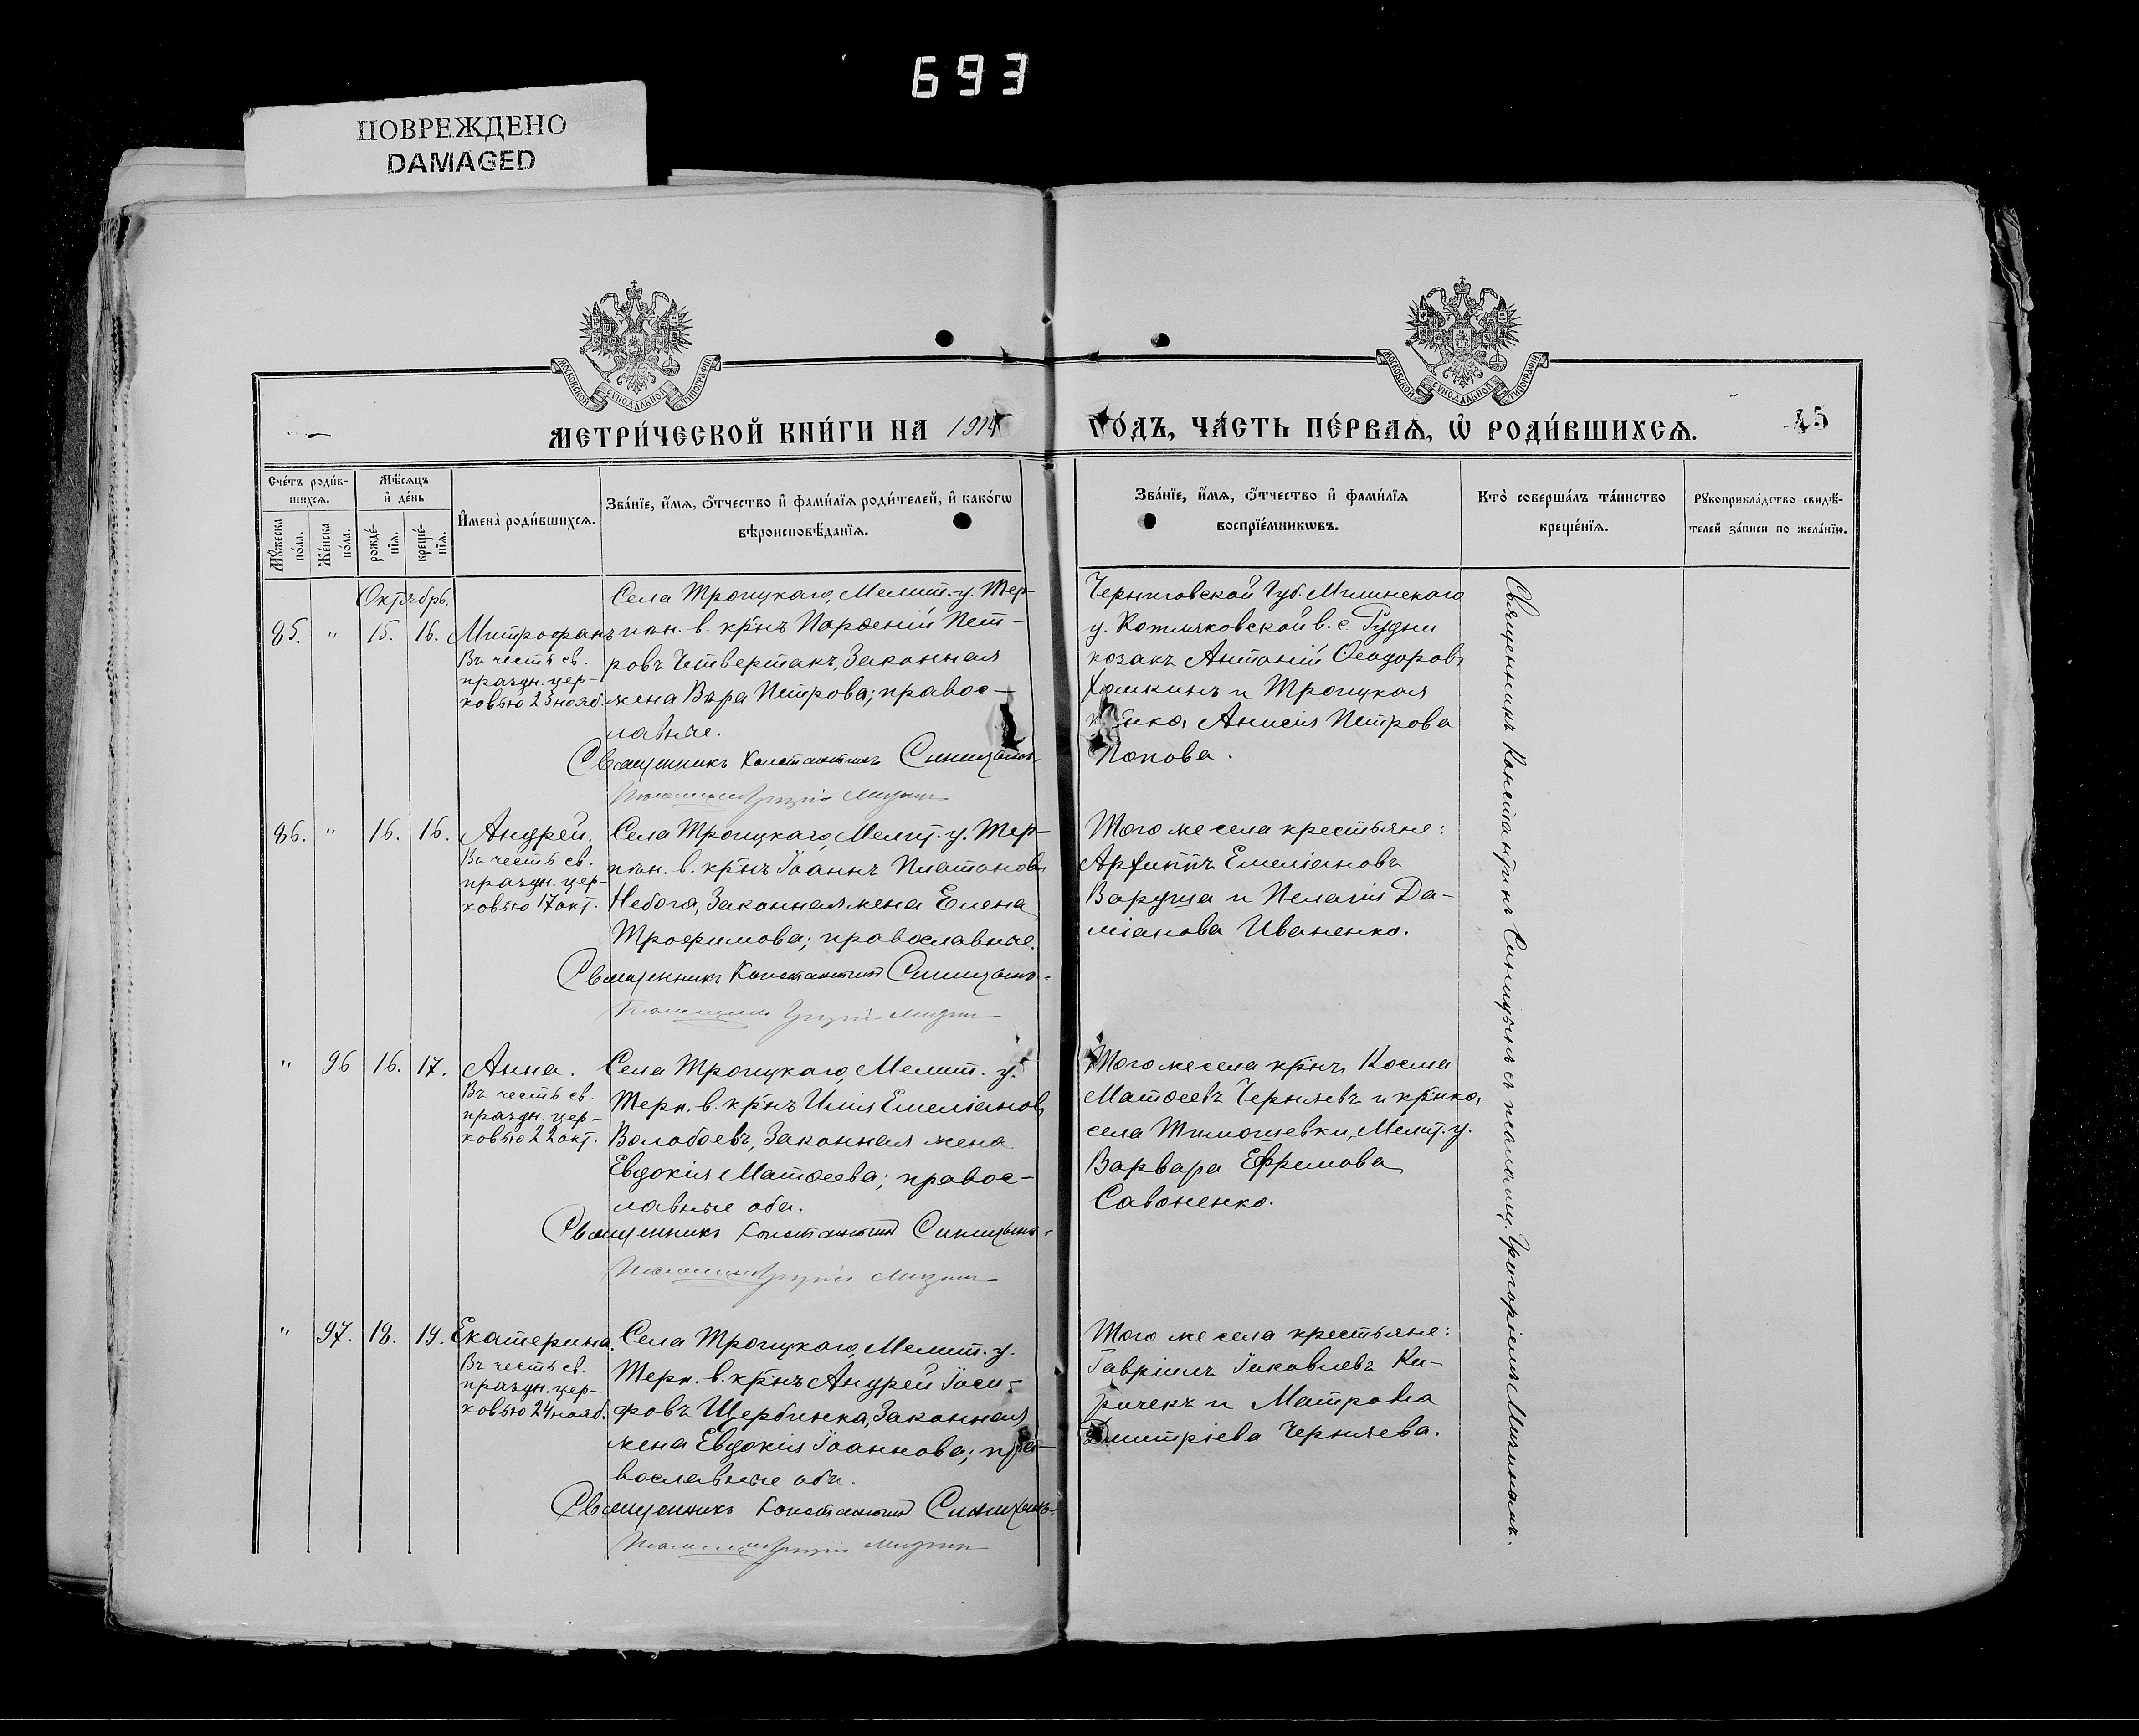 693
ПОВРЕЖДЕНО
DAMAGED
МОСКОВСКОЙ СѴНОДАЛЬНОЙ ТИПОГРАФІИ
МОСКОВСКОЙ СѴНОДАЛЬНОЙ ТИПОГРАФІИ
МЕТРИ́ЧЕСКОЙ КНИ́ГИ НА 1914
ГО́ДЪ, ЧА́СТЬ ПЕ́РВАЯ, Ѡ҆ РОДИ́ВШИХСЯ.
45
Сче́тъ роди́в-
шихся.
Мѣ́сяцъ
и҆ де́нь
Мꙋ́жеска
по́ла.
Же́нска
по́ла.
рожде́-
нїя.
креще́-
нїя.
И҆мена̀ роди́вшихся.
Зва́нїе, и҆́мя, ѻ҆́тчество и҆ фами́лїя роди́телей, и҆ како́гѡ
вѣроисповѣ́данїя.
Зва́нїе, и҆́мя, ѻ҆́тчество и҆ фами́лїя
воспрїе́мникѡвъ.
Кто̀ соверша́лъ та́инство
креще́нїя.
Рꙋкоприкла́дство свидѣ́-
телей за́писи по жела́нїю.
Октябрь.
85. " 15. 16. Митрофанъ
Въ честь св.
праздн. цер-
ковью 23 нояб.
Села Троицкаго, Мелит. у. Тер-
пѣн. в. кр̃нъ Парѳеній Пет-
ровъ Четвертакъ, Законная
жена Вѣра Петрова; правос-
лавные.
Священникъ Константинъ Синицынъ
Черниговской Губ. Мглинскаго
у. Котляковской в. с. Рудни
козакъ Антоній Ѳеодоровъ
Хомкинъ и Троицкая
Анисія Петрова
Попова.
86. " 16. 16. Андрей.
Въ честь св.
праздн. цер-
ковью 17 окт.
Села Троицкаго, Мелит. у. Тер-
пѣн. в. кр̃нъ Іоаннъ Платоновъ
Небога, Законная жена Елена
Трофимова; православные.
Священникъ Константинъ Синицынъ
Того же села крестьяне:
Архиппъ Емеліановъ
Варуша и Пелагія Да-
міанова Иваненко.
" 96 16. 17. Анна.
Въ честь св.
праздн. цер-
ковью 22 окт.
Села Троицкаго, Мелит. у.
Терп. в. кр̃нъ Илія Емеліановъ
Волобоевъ, Законная жена
Евдокія Матѳеева; правос-
лавные оба.
Священникъ Константинъ Синицынъ
Того же села кр̃нъ Косма
Матѳеевъ Черняевъ и кр̃нка
села Тимошевки, Мелит. у.
Варвара Ефремова
Савоненко.
" 97. 18. 19. Екатерина.
Въ честь св.
праздн. цер-
ковью 24 нояб.
Села Троицкаго, Мелит. у.
Терп. в. кр̃нъ Андрей Іоси-
фовъ Щербинка, Законная
жена Евдокія Іоаннова; пра-
вославные оба.
Священникъ Константинъ Синицынъ
Того же села крестьяне:
Гавріилъ Іаковлевъ Ки-
ричекъ и Матрона
Димитріева Черняева.
Священникъ Константинъ Синицынъ съ псаломщ. Григоріемъ Мизинымъ.